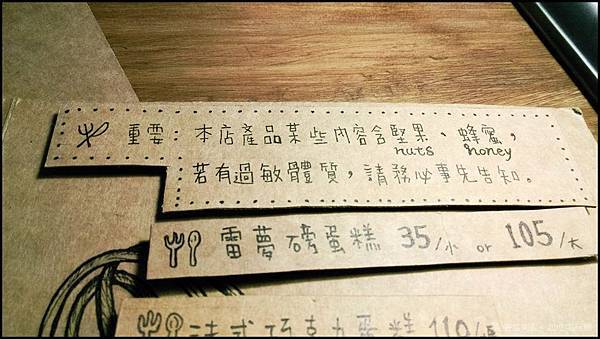 重要：本店產品某些內容含堅果、蜂蜜，
nuts honey
若有過敏體質，請務必事先告知。
雷夢磅蛋糕 35/小 or 105/大
法式巧克力蛋糕 110/